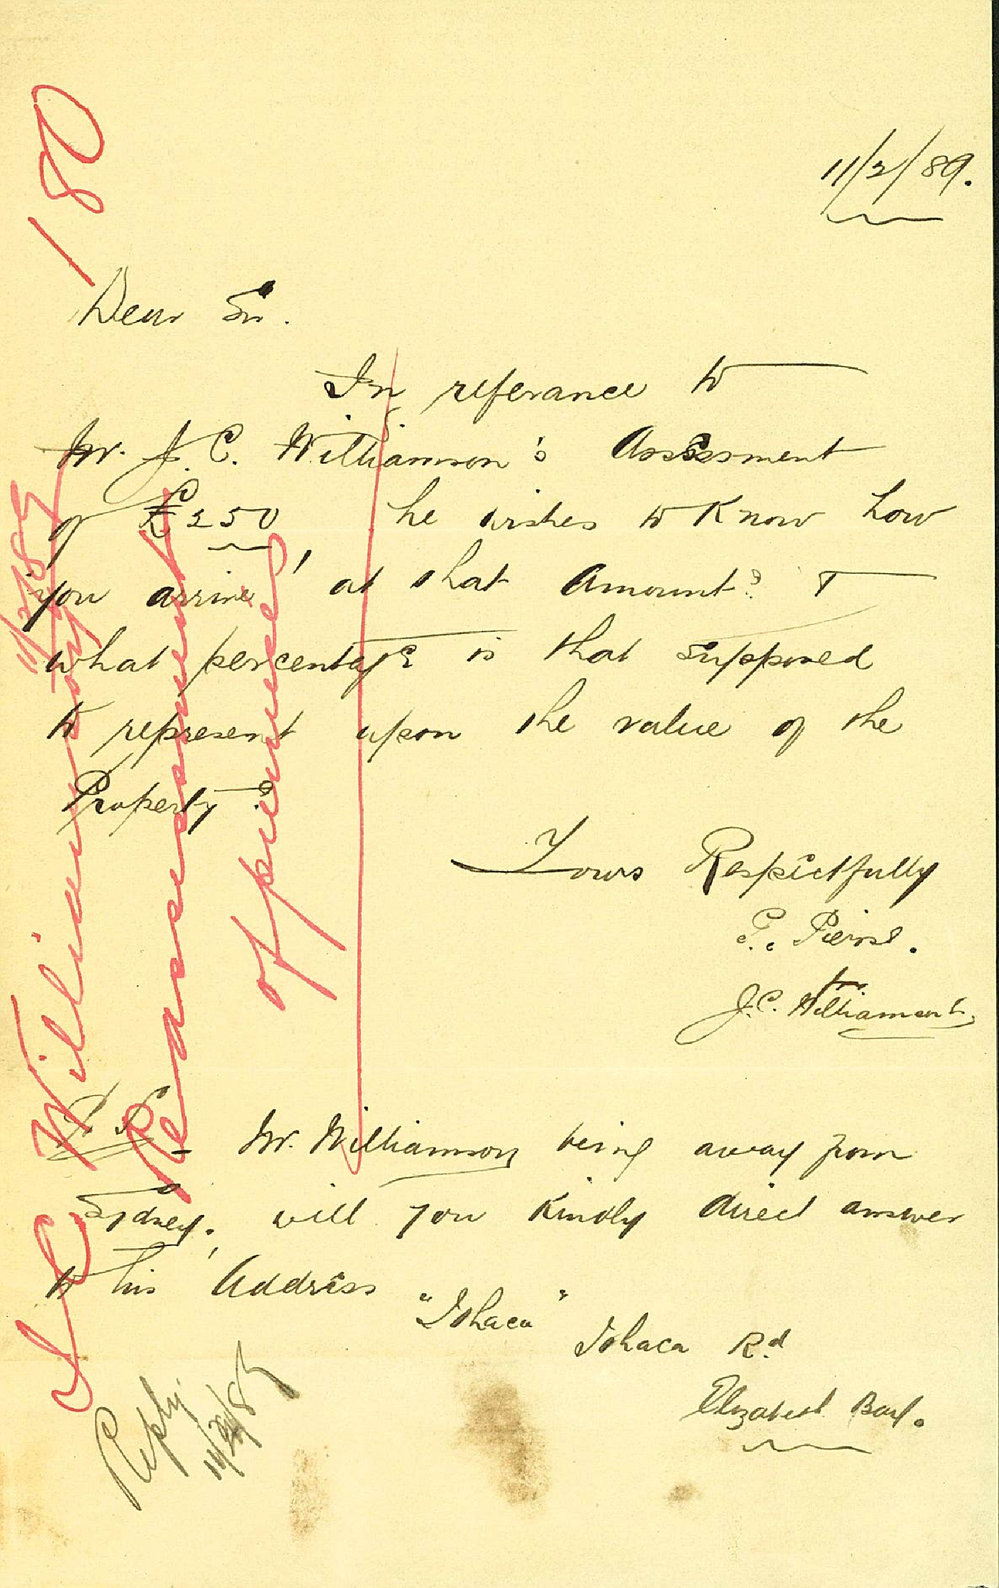 180
11/2/89.
Dear Sir.
In referance to
Mr. J. C. Williamson's Assesment
of £250 he wishes to Know how
you arrive at that Amount? &
what percentage is that supposed
to represent upon the value of the
Property?
Yours Respectfully
Pierse.
for
J. C. Williamson
P.S. Mr. Williamson being away from
Sydney, will you Kindly direct answer
to his Address
"Ithaca" Ithaca Rd
Elizabeth Bay.
J C Williamson
11/2/89
Re assessment
of premises
Reply.
11/2/89